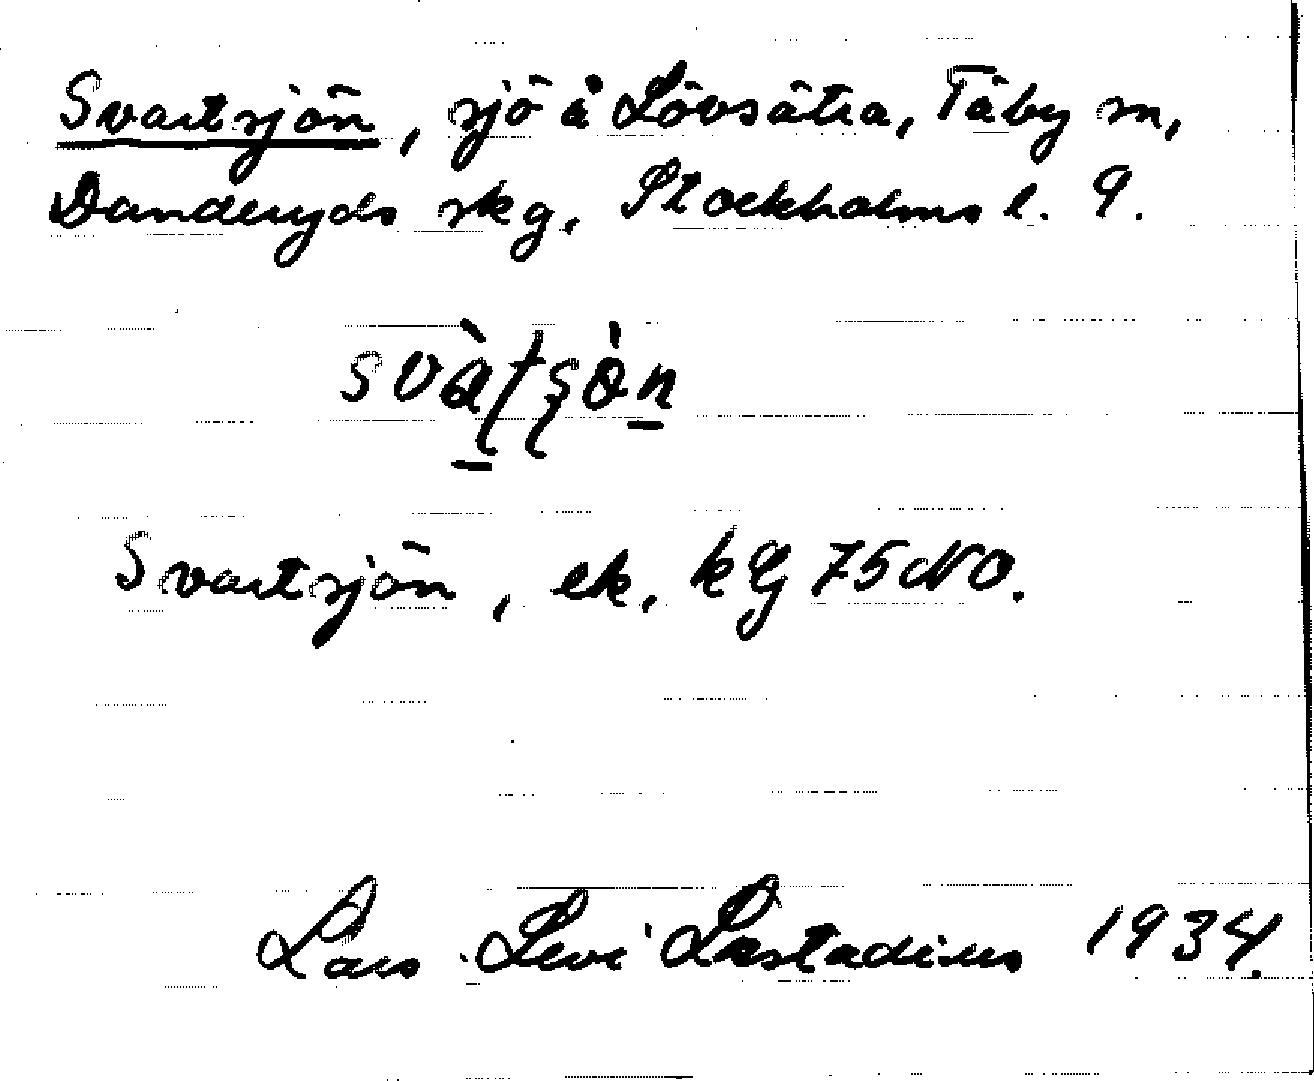 Svartsjön, sjö å Lövsätra, Täby sn,
Danderyds skg, Stockholms l. 9.
Svartsjön, ek. kg 75 NO.
Lars Levi Læstadius 1934.